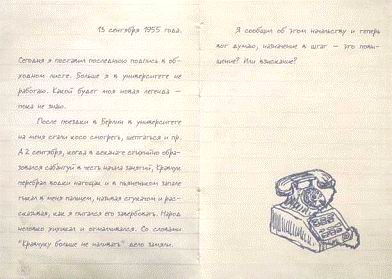 13 сентября 1955 года.
Сегодня я поставил последнюю подпись в об-
ходном листе. Больше я в университете не
работаю. Какой будет моя новая легенда —
пока не знаю.
После поездки в Берлин в университете
на меня стали косо смотреть, шептаться и пр.
А 2 сентября, когда в деканате стихийно обра-
зовался сабантуй в честь начала занятий, Кравчук
перебрал водки натощак и в пьяненьком запале
тыкал в меня пальцем, называя стукачом и рас-
сказывая, как я пытался его завербовать. Народ
неловко хихикал и отмалчивался. Со словами
"Кравчуку больше не наливать" дело замяли.
Я сообщил об этом начальству и теперь
вот думаю, назначение в штат — это повы-
шение? Или взыскание?